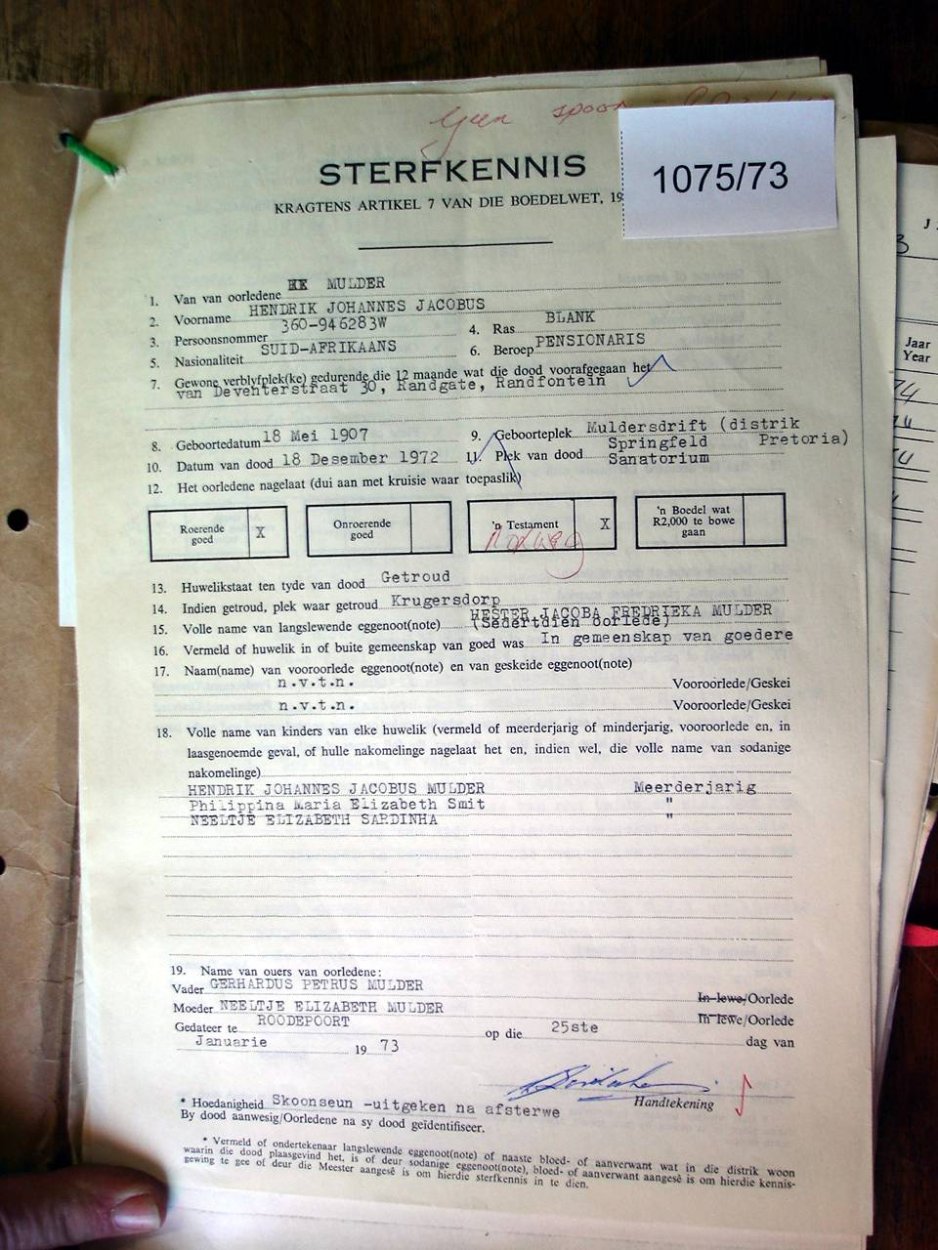 Geen spoor
STERFKENNIS
1075/73
KRAGTENS ARTIKEL 7 VAN DIE BOEDELWET, 19
1. Van van oorledene HE MULDER
2. Voorname HENDRIK JOHANNES JACOBUS
3. Persoonsnommer 360-946283W 4. Ras BLANK
5. Nasionaliteit SUID-AFRIKAANS 6. Beroep PENSIONARIS
7. Gewone verblyfplek(ke) gedurende die 12 maande wat die dood voorafgegaan het
van Deventerstraat 30, Randgate, Randfontein
8. Geboortedatum 18 Mei 1907 9. Geboorteplek Muldersdrift (distrik
Pretoria)
10. Datum van dood 18 Desember 1972 11. Plek van dood Springfeld
Sanatorium
12. Het oorledene nagelaat (dui aan met kruisie waar toepaslik)
Roerende goed X Onroerende goed 'n Testament X 'n Boedel wat R2,000 te bowe gaan
13. Huwelikstaat ten tyde van dood Getroud
14. Indien getroud, plek waar getroud Krugersdorp
15. Volle name van langslewende eggenoot(note) HESTER JACOBA FREDRIEKA MULDER
(Sedertdien oorlede)
16. Vermeld of huwelik in of buite gemeenskap van goed was In gemeenskap van goedere
17. Naam(name) van vooroorlede eggenoot(note) en van geskeide eggenoot(note)
n.v.t.n. Vooroorlede/Geskei
n.v.t.n. Vooroorlede/Geskei
18. Volle name van kinders van elke huwelik (vermeld of meerderjarig of minderjarig, vooroorlede en, in
laasgenoemde geval, of hulle nakomelinge nagelaat het en, indien wel, die volle name van sodanige
nakomelinge)
HENDRIK JOHANNES JACOBUS MULDER Meerderjarig
Philippina Maria Elizabeth Smit "
NEELTJE ELIZABETH SARDINHA "
19. Name van ouers van oorledene:
Vader GERHARDUS PETRUS MULDER In lewe/Oorlede
Moeder NEELTJE ELIZABETH MULDER In lewe/Oorlede
Gedateer te ROODEPOORT op die 25ste dag van
Januarie 19 73
Handtekening
* Hoedanigheid Skoonseun -uitgeken na afsterwe
By dood aanwesig/Oorledene na sy dood geïdentifiseer.
* Vermeld of ondertekenaar langslewende eggenoot(note) of naaste bloed- of aanverwant wat in die distrik woon
waarin die dood plaasgevind het, is of deur sodanige eggenoot(note), bloed- of aanverwant aangesê is om hierdie kennis-
gewing te gee of deur die Meester aangesê is om hierdie sterfkennis in te dien.
Jaar
Year